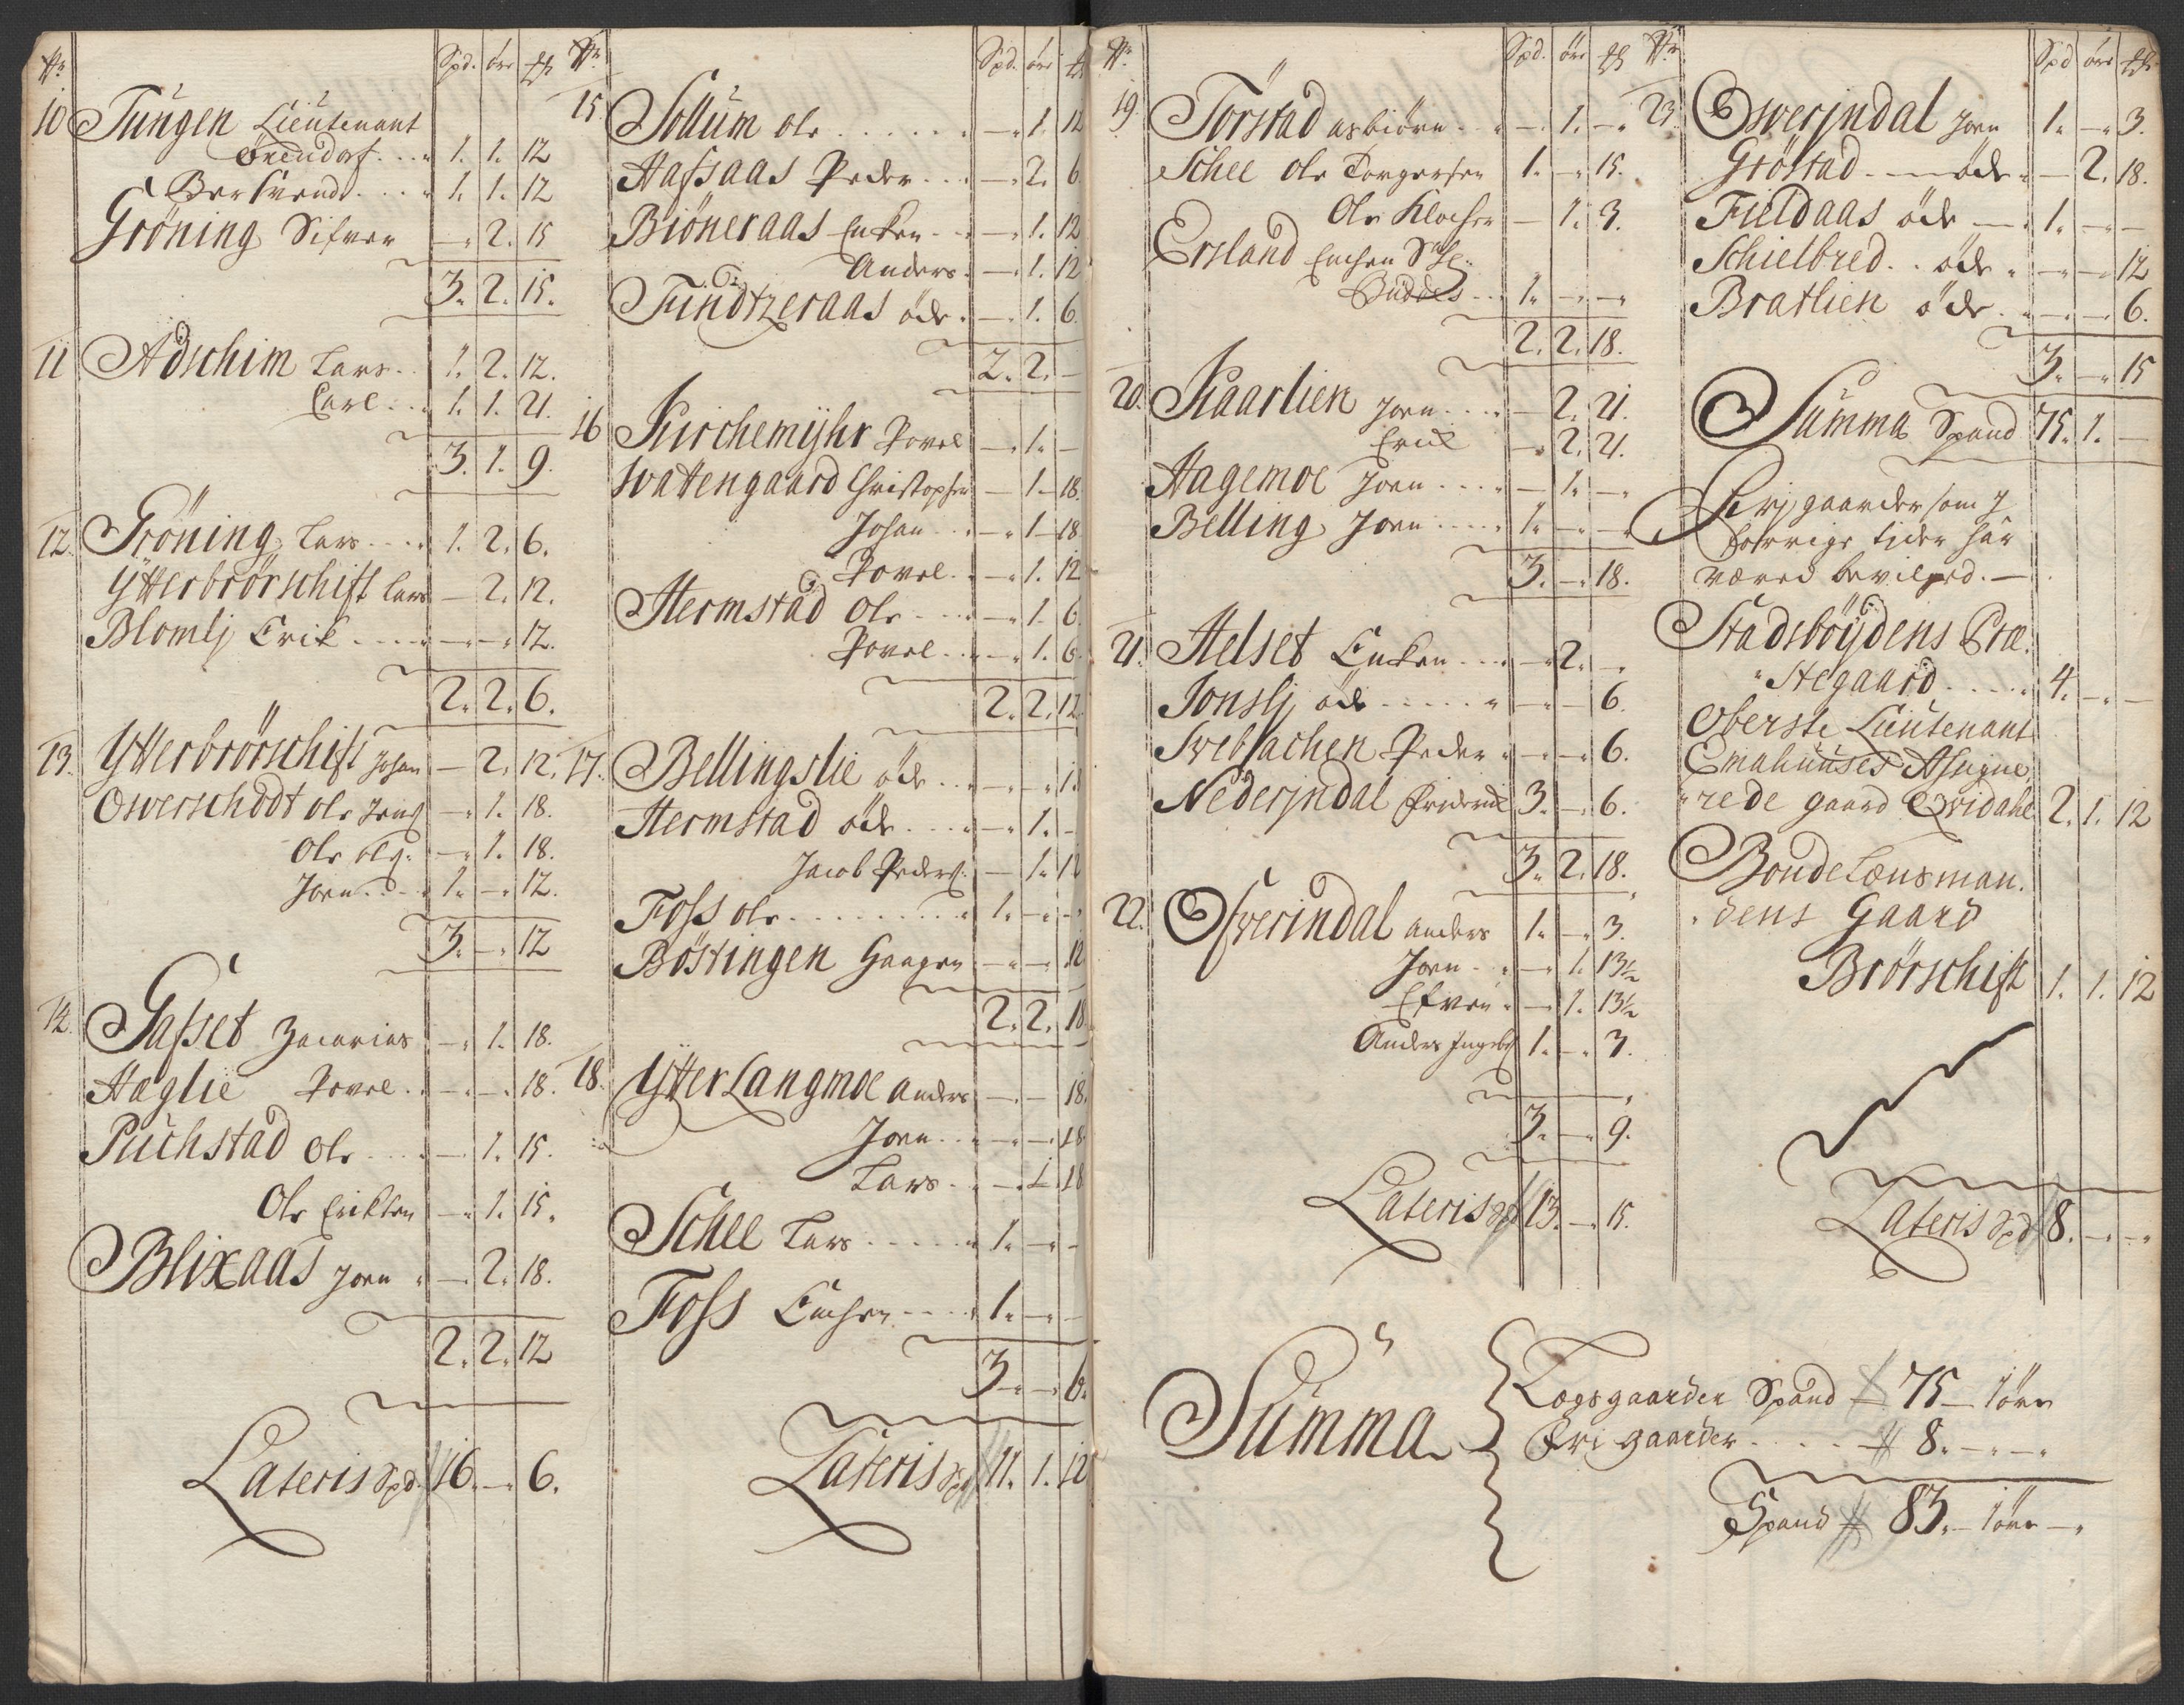 Nr Spd. öre ℔
10 Tüngen Lieutenant
Örendorf.... 1. 1. 12
Ber Svend.... 1. 1. 12
Gröning Sifver —. 2. 15
3. 2. 15.
11 Adschim Lars.. 1. 2. 12.
Carl... 1. 1. 21.
3. 1. 9.
12. Gröning Lars.... 1. 2. 6.
Ytterbrörschift Lars — 2. 12.
Blomlj Erik..... —.—. 12.
2. 2. 6.
13. Ytterbrörschift Johan — 2. 12.
Owerschodt Ole Jens —. 1. 18.
Ole Olß: —. 1. 18.
Joen..... 1. —. 12.
3. —. 12
14. Gasset Zacarias —. 1. 18.
Haglie Povel.. —.—. 18.
Puchstad Ole.... —. 1. 15.
Ole Erichsen —. 1. 15.
Blixaas Joen —. 2. 18.
2. 2. 12
Lateris Spd. 16. —. 6.
Nr Spd. öre ℔
15 Sollüm Ole....... —. 1. 12
Hafsaas Peder... —. 2. 6
Biöneraas Encken.. —. 1. 12
Anders. —. 1. 12
Tündtzeraas öde. —. 1. 6.
2. 2. —
16 Kirchemyhr Povel —. 1. —
Wattengaard Christopher — 1. 18.
Johan... —. 1. 18
Povel. —. 1. 12
Hermstad Ole.... —. 1. 6
Povel.. —. 1. 6.
2. 2. 12
17. Bellingslie öde.. —.—. 18
Hermstad öde.... —. 1. —
Jacob Peders: — 1. 12
Foss Ole......... 1. —. —
Böstingen Haagen —.—. 12
2. 2. 18
18. Ytter Langmoe Anders —.— 18.
Joen.. —.—. 18.
Lars.. —. 1. 18
Schee Lars...... 1. —. —
Foss Enchen..... 1. —. —
3. —. 6.
Lateris Spd 11. 1. 12
Nr Spd. öre ℔
19. Torstad Asbiörn.. —. 1. —.
Schee Ole Torgersen 1. —. 15.
Ole Klocher — 1. 3.
Ersland Enchen Sl:
Buddes... 1. —. —.
2. 2. 18.
20. Kaarlien Joen.... —. 2. 21.
Erick —. 2. 21.
Hagemoe Joen.... —. 1. —.
Belling Joen..... 1. —. —
3. —. 18.
21. Helset Encken.... —. 2. —.
Jonslj öde...... —.— 6.
Swebachen Peder —.—. 6.
Nederjndal Friderich 3. —. 6.
3. 2. 18.
22. Ofwerindal Anders 1. —. 3.
Joen.. —. 1. 13½
Efven. —. 1. 13½
Anders Ingebr: 1. —. 3.
3. —. 9.
Lateris Spd 13. —. 15.
Nr Spd öre ℔
23. Owerjndal Joen 1. —. 3.
Gröstad..... öde. — 2. 18.
Fieldaas öde —. 1. —. —
Schielbred.. öde. —.—. 12
Bratlien öde. —.—. 6.
3. —. 15
Summa Spand 75. 1. —
Frj gaarder som j
forrige tider har
været bevilget. —
Stadsböydens Præ:
stegaard.... 4. —. —
Oberste Lieutenant
Emahuuses Assigne,
rede gaard Qvidahl 2. 1. 12
Bonde Lensman.
dens Gaard
Brörschift 1. 1. 12
Lateris Spd 8. —. —.
Summa Lægsgaarder Spand 75 — 1 öre
Fri gaarder.... 8. —. —.
Spand 83. — 1 öre —.